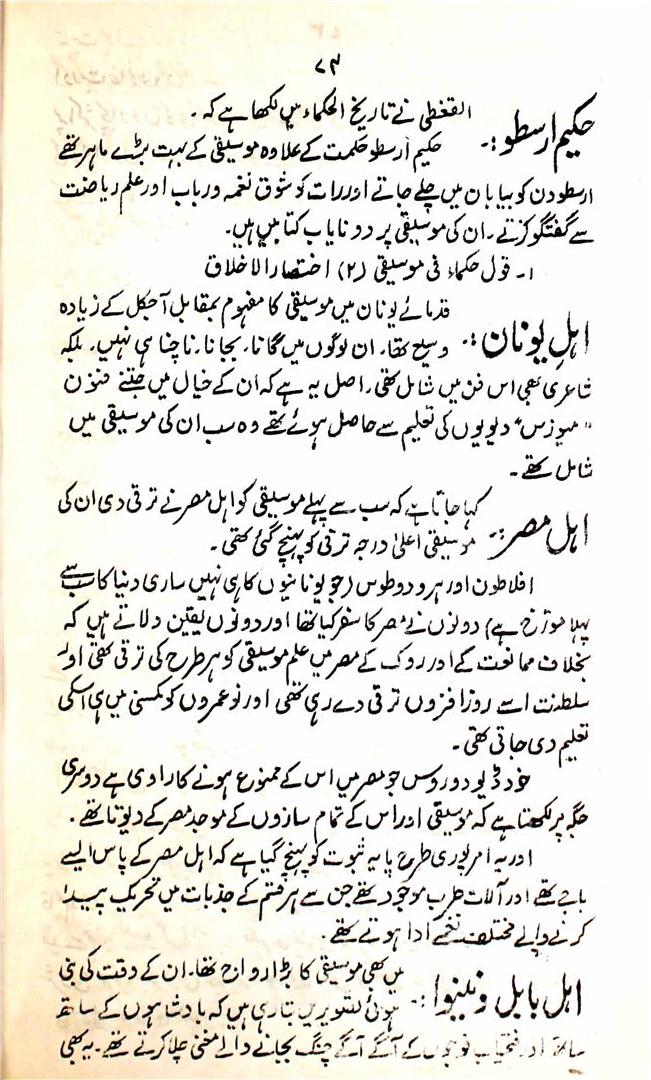 ۷۳
القفطی نے تاریخ الحکماء میں لکھا ہے کہ۔
حکیم ارسطو :۔ حکیم ارسطو حکمت کے علاوہ موسیقی کے بہت بڑے ماہر تھے
ارسطو دن کو بیابان میں چلے جاتے اور رات کو شوق نغمہ ورباب اور علم ریاضت
سے گفتگو کرتے۔ ان کی موسیقی پر دو نایاب کتابیں ہیں۔
۱۔ قول حکماء فی موسیقی (۲) اختصار الاخلاق
قدمائے یونان میں موسیقی کا مفہوم بمقابل آجکل کے زیادہ
اہلِ یونان :۔ وسیع تھا۔ ان لوگوں میں گانا، بجانا، ناچنا ہی نہیں، بلکہ
شاعری بھی اس فن میں شامل تھی۔ اصل یہ ہے کہ ان کے خیال میں جتنے فنون
"میوزس" دیویوں کی تعلیم سے حاصل ہوئے تھے وہ سب ان کی موسیقی میں
شامل تھے۔
کہا جاتا ہے کہ سب سے پہلے موسیقی کو اہل مصر نے ترقی دی ان کی
اہل مصر :۔ موسیقی اعلیٰ درجہ ترقی کو پہنچ گئی تھی۔
افلاطون اور ہرودوطوس (جو یونانیوں کا ہی نہیں ساری دنیا کا سب سے
پہلا مورخ ہے) دونوں نے مصر کا سفر کیا تھا اور دونوں یقین دلاتے ہیں کہ
بخلاف ممانعت کے اور روک کے مصر میں علم موسیقی کو ہر طرح کی ترقی تھی اور
سلطنت اسے روز افزوں ترقی دے رہی تھی اور نوعمروں کو کمسنی میں ہی اسکی
تعلیم دی جاتی تھی۔
خود ڈیودوروس جو مصر میں اس کے ممنوع ہونے کا راوی ہے دوسری
جگہ پر لکھتا ہے کہ موسیقی اور اس کے تمام سازوں کے موجد مصر کے دیوتا تھے۔
اور یہ امر پوری طرح پایہ ثبوت کو پہنچ گیا ہے کہ اہل مصر کے پاس ایسے
باجے تھے اور آلات طرب موجود تھے جن سے ہر قسم کے جذبات میں تحریک پیدا
کرنے والے مختلف نغمے ادا ہوتے تھے۔
میں بھی موسیقی کا بڑا رواج تھا۔ ان کے وقت کی بنی
اہل بابل و نینوا :۔ ہوئی تصویریں بتا رہی ہیں کہ بادشاہوں کے ساتھ
ساتھ اور فتحیاب فوجوں کے آگے آگے چنگ بجانے والے مغنی چلا کرتے تھے۔ یہ بھی